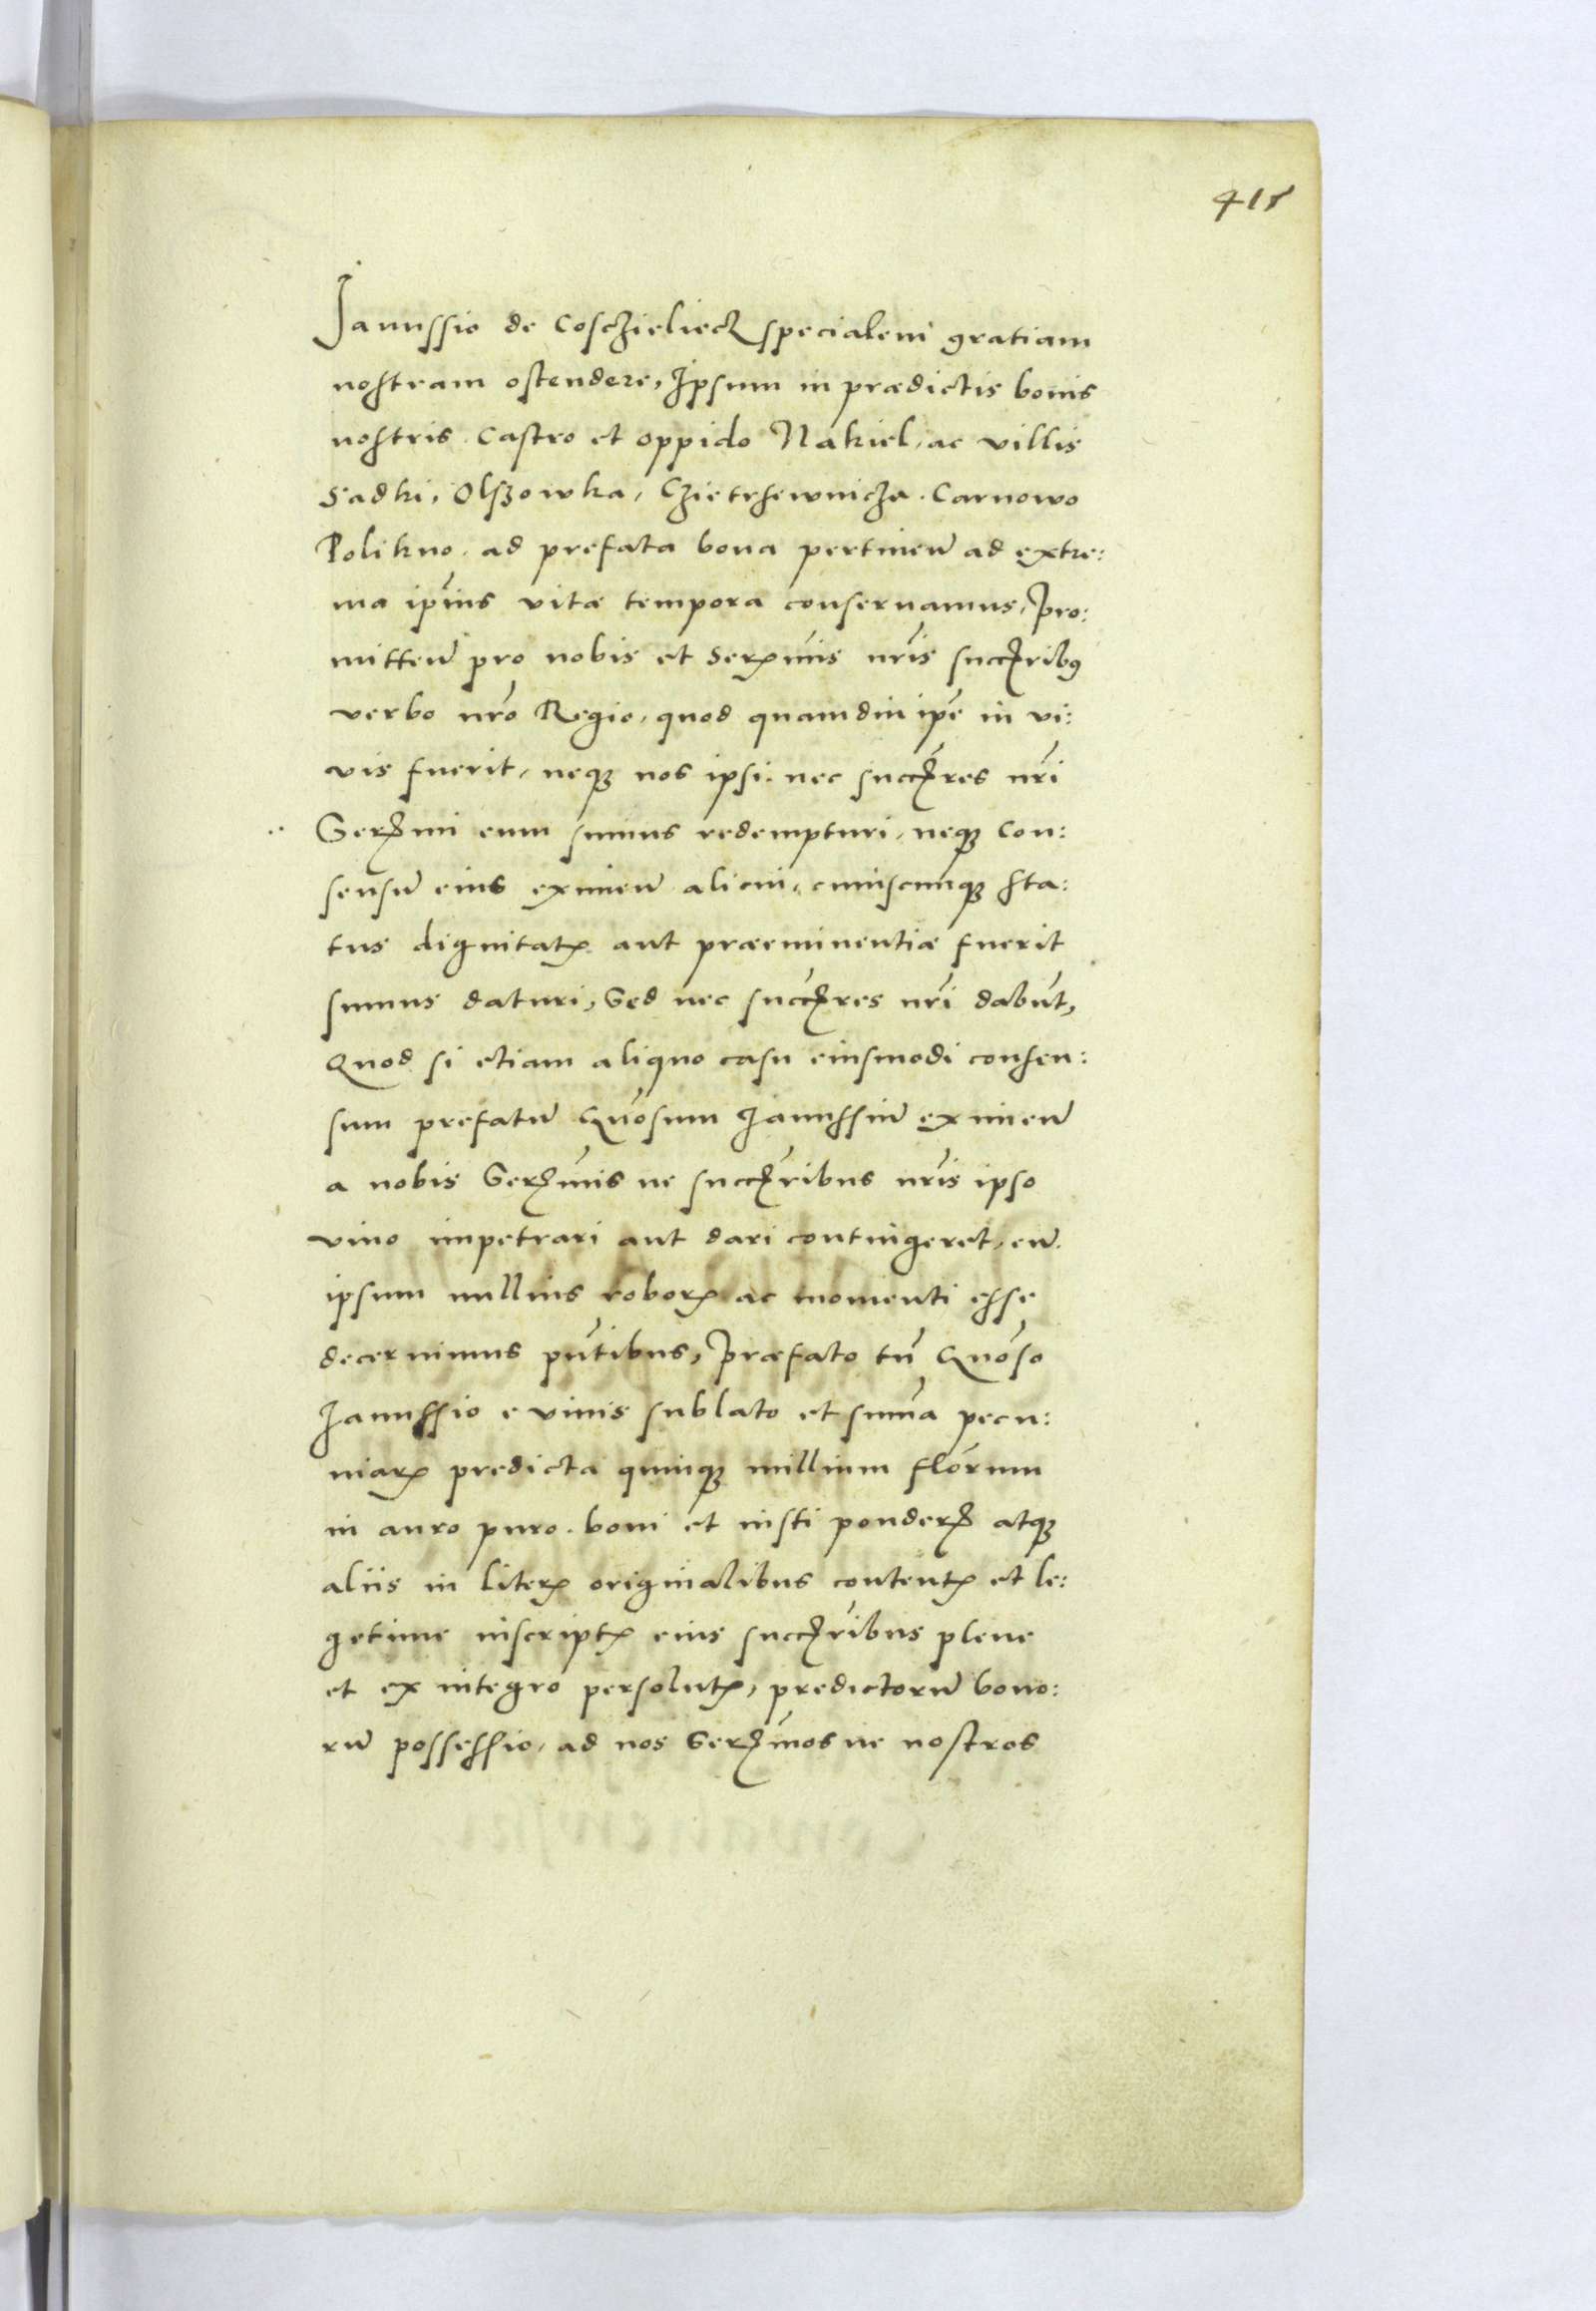 415
Janussio de Cosczieliecz specialem gratiam
nostram ostendere, Ipsum in prædictis bonis
nostris. Castro et oppido Nakiel, ac villis
Sadki, Olszowka, Czietrhewnicza. Carnowo
Polikno. ad prefata bona pertineñ ad extre:
ma ip̃ius vitæ tempora conseruamus, Pro:
mitteñ pro nobis et Serꝫmis nr̃is succꝫribꝰ
verbo nr̃o Regio, quod quamdiu ip̃e in vi:
vis fuerit, neqꝫ nos ipsi. nec succꝫres nr̃i
Serꝫmi eum sumus redempturi, neqꝫ Con:
sensũ eius eximeñ alicui, cuiuscunqꝫ sta:
tus dignitatꝭ aut præeminentiæ fuerit
sumus daturi, Sed nec succꝫres nr̃i dabũt,
Quod si etiam aliquo casu eiusmodi consen:
sum prefatũ Gñosum Janussiũ eximeñ
a nobis Serꝫmis ve succꝫribus nr̃is ipso
viuo impetrari aut dari contingeret, eũ.
ipsum nullius roborꝭ ac momenti esse
decernimus pñtibus, Præfato tñ Gñoso
Janussio e viuis sublato et sum̃a pecu:
niarꝭ predicta quinqꝫ millium flõrum
in auro puro. boni et iusti ponderꝭ atqꝫ
aliis in literꝭ originalibus contentꝭ et le:
getime inscriptꝭ eius succꝫribus plene
et ex integro persolutꝭ, predictorũ bono:
rũ possessio, ad nos Serꝫmos ve nostros